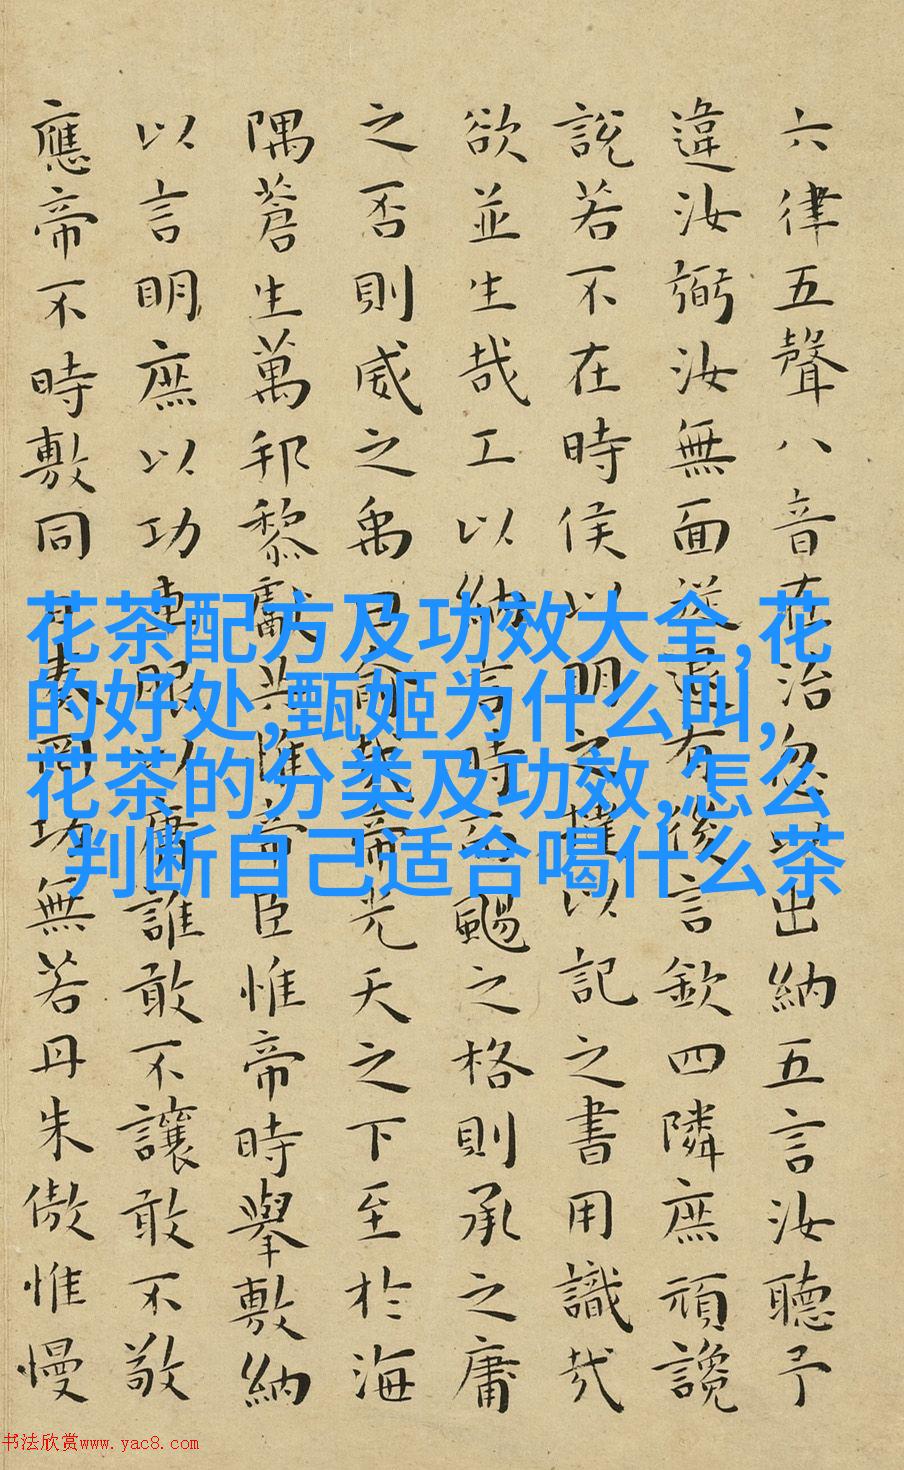 六律五聲八音在治忽以出納五言汝聽予
違汝弼汝無面從退有後言欽四隣庶頑讒
說若不在時侯以明之撻以記之書用識哉
欲並生哉工以納言時而颺之格則承之庸
之否則威之禹曰俞哉帝光天之下至於海
隅蒼生萬邦黎獻共惟帝臣惟帝時舉敷納
以言明庶以功車服以庸誰敢不讓敢不敬
應帝不時敷同日奏罔功無若丹朱傲惟慢
花茶配方及功效大全,花
的好处,甄姬为什么叫,
花茶的分类及功效,怎么
判断自己适合喝什么茶
书法欣赏www.yac8.com